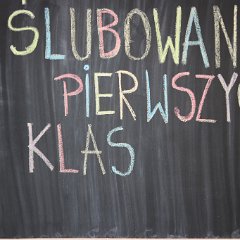 ŚLUBOWAN
PIERWSZY
KLAS